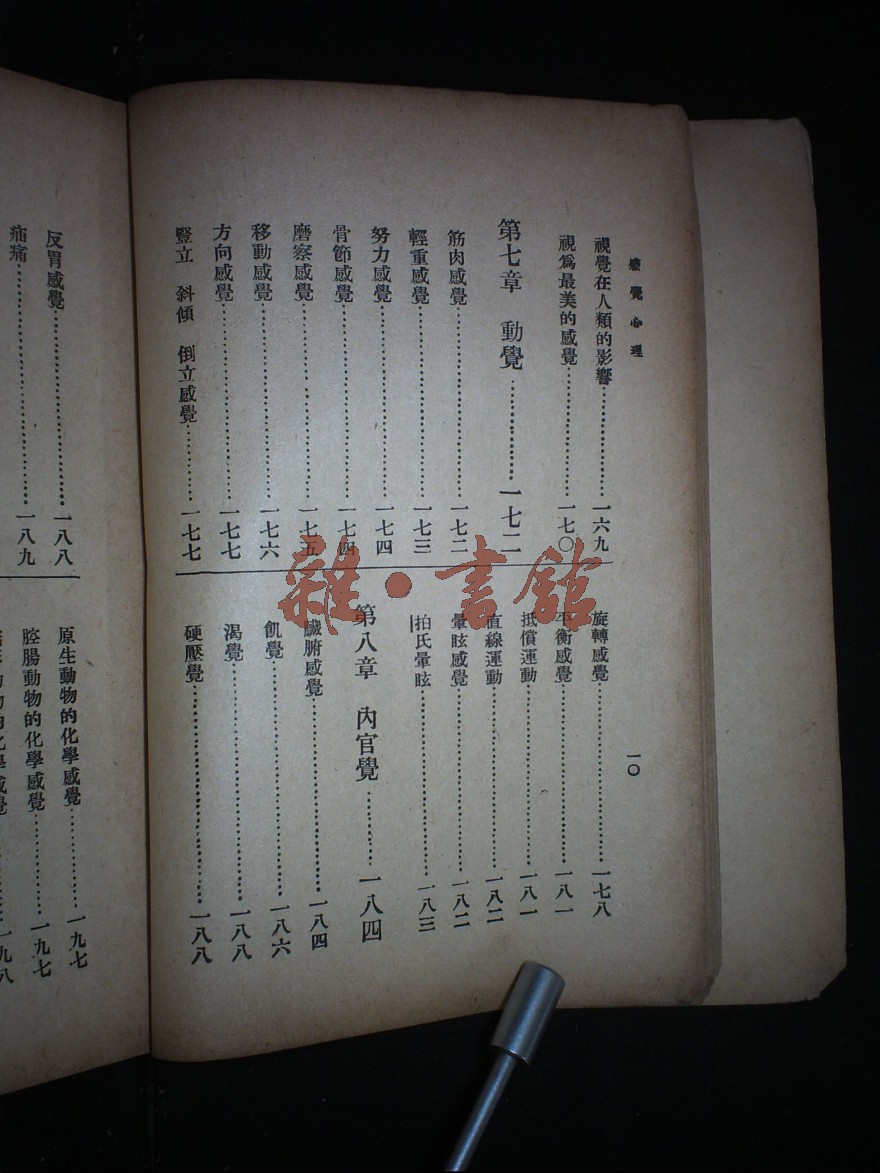 感覺心理
一〇
視覺在人類的影響……一六九
視爲最美的感覺……一七〇
第七章　動覺……一七二
筋肉感覺……一七二
輕重感覺……一七三
努力感覺……一七四
骨節感覺……一七四
磨察感覺……一七五
移動感覺……一七六
方向感覺……一七七
豎立　斜傾　倒立感覺……一七七
旋轉感覺……一七八
平衡感覺……一八一
抵償運動……一八一
直線運動……一八二
暈眩感覺……一八二
拍氏暈眩……一八三
第八章　內官覺……一八四
臟腑感覺……一八四
飢覺……一八六
渴覺……一八八
硬壓覺……一八八
反胃感覺……一八八
痛……一八九
原生動物的化學感覺……一九七
腔腸動物的化學感覺……一九七
動物的化學感覺……一九八
雜·書館